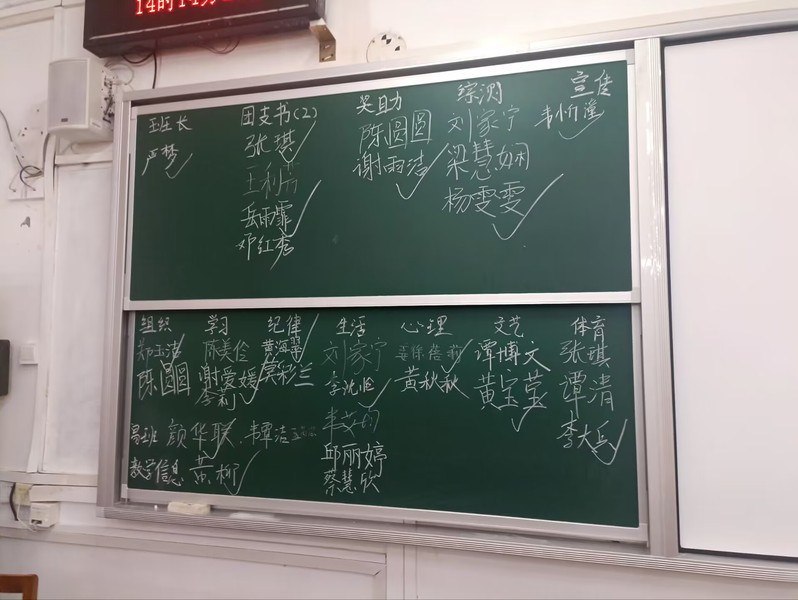 14时14分
班长
严梦
团支书(2)
张琪
王利芳
岳雨霏
邓红秀
奖自力
陈圆圆
谢雨洁
综测
刘家宁
梁慧娴
杨雯雯
宣传
韦忻滢
组织
郑玉洁
陈圆圆
学习
陈美伶
谢爱媛
李莉
纪律
黄海翠
莫彩兰
生活
刘家宁
李沈临
邱丽婷
蔡慧欣
心理
黄秋秋
文艺
谭博文
黄宝莹
体育
张琪
谭清
李大兵
易班 颜华联 韦覃洁
教学信息 黄柳